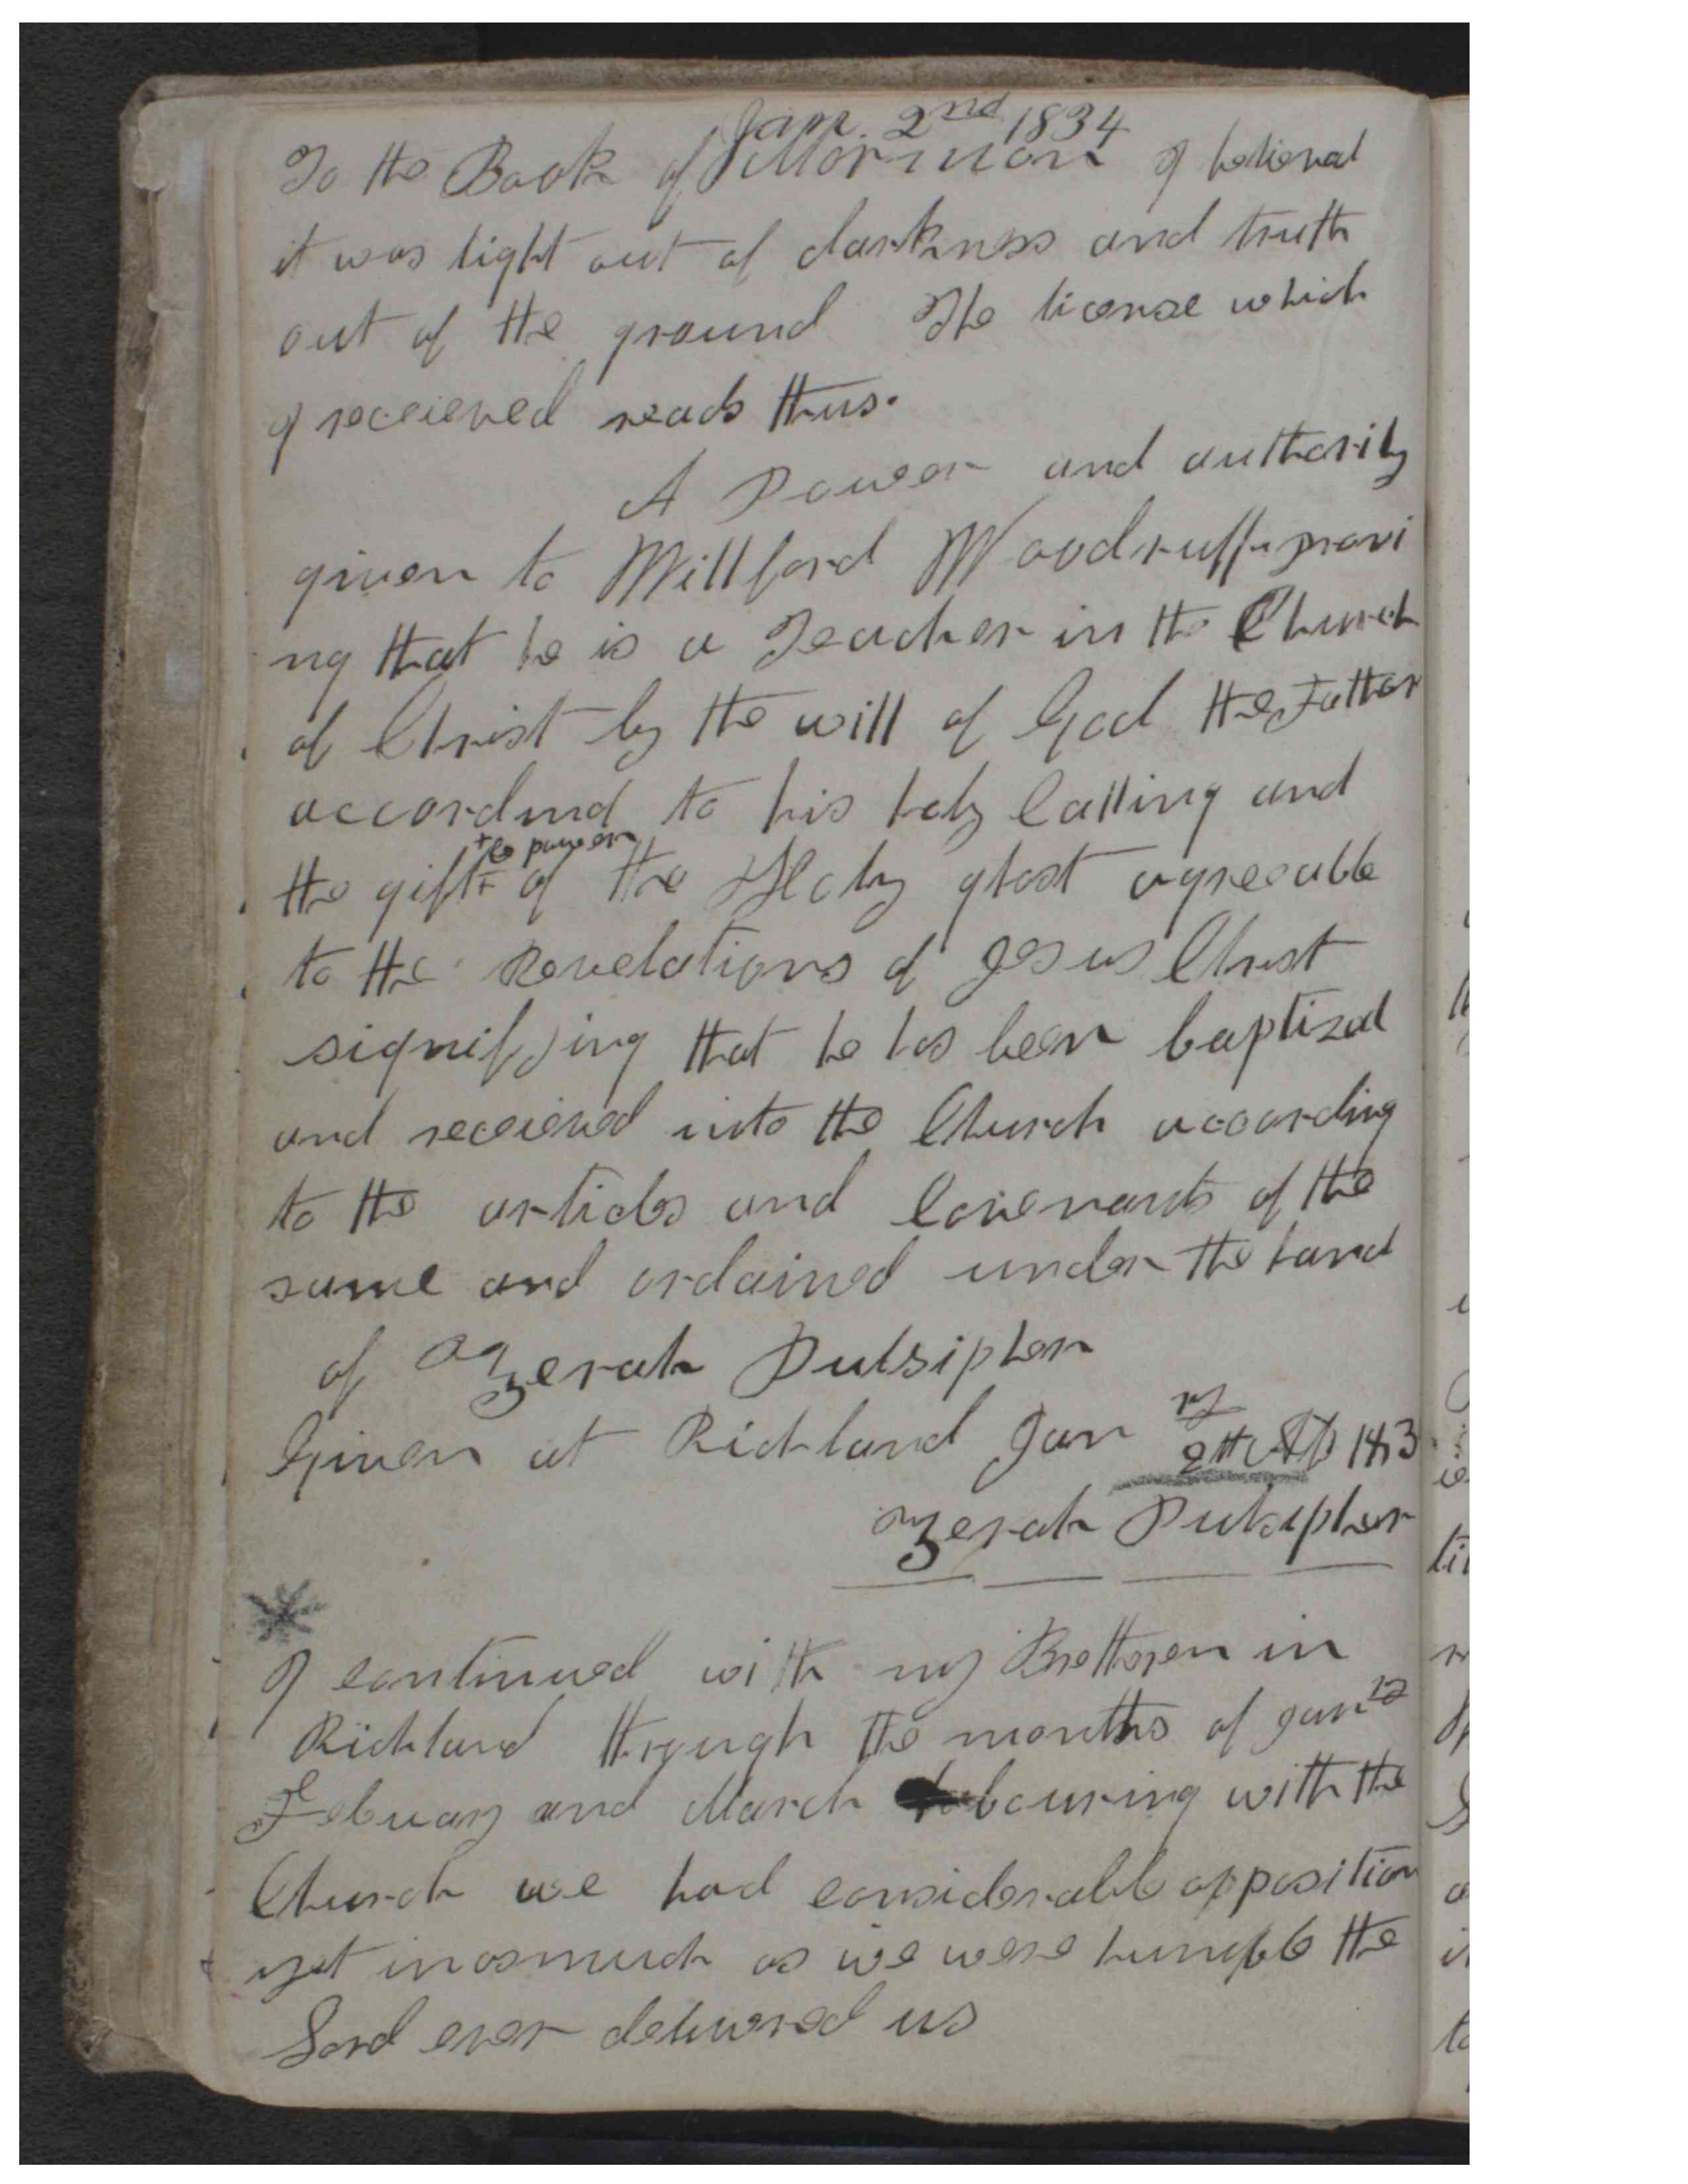 Jan. 2nd 1834
To the Book of Mormon I believed
it was light out of darkness and truth
out of the ground The license which
I receieved reads thus.
A Power and authority
given to Willford Woodruff provi
ng that he is a Teacher in the Church
of Christ by the will of God the Father
accordind to his holy Calling and
+ & power
the gift of the Holy ghost agreeable
to the Revelations of Jesus Christ
signifying that he has been baptized
and receieved into the Church according
to the articles and Covenants of the
same and ordained under the hand
of Zerah Pulsipher
Given at Richland Jan ry
2nd AD 183
Zerah Pulsipher
I continued with my Brethren in
Richland through the months of Jan ry
Febuary and March labouring with the
Church we had considerable opposition
yet inasmuch as we were humble the
Lord ever delivered us